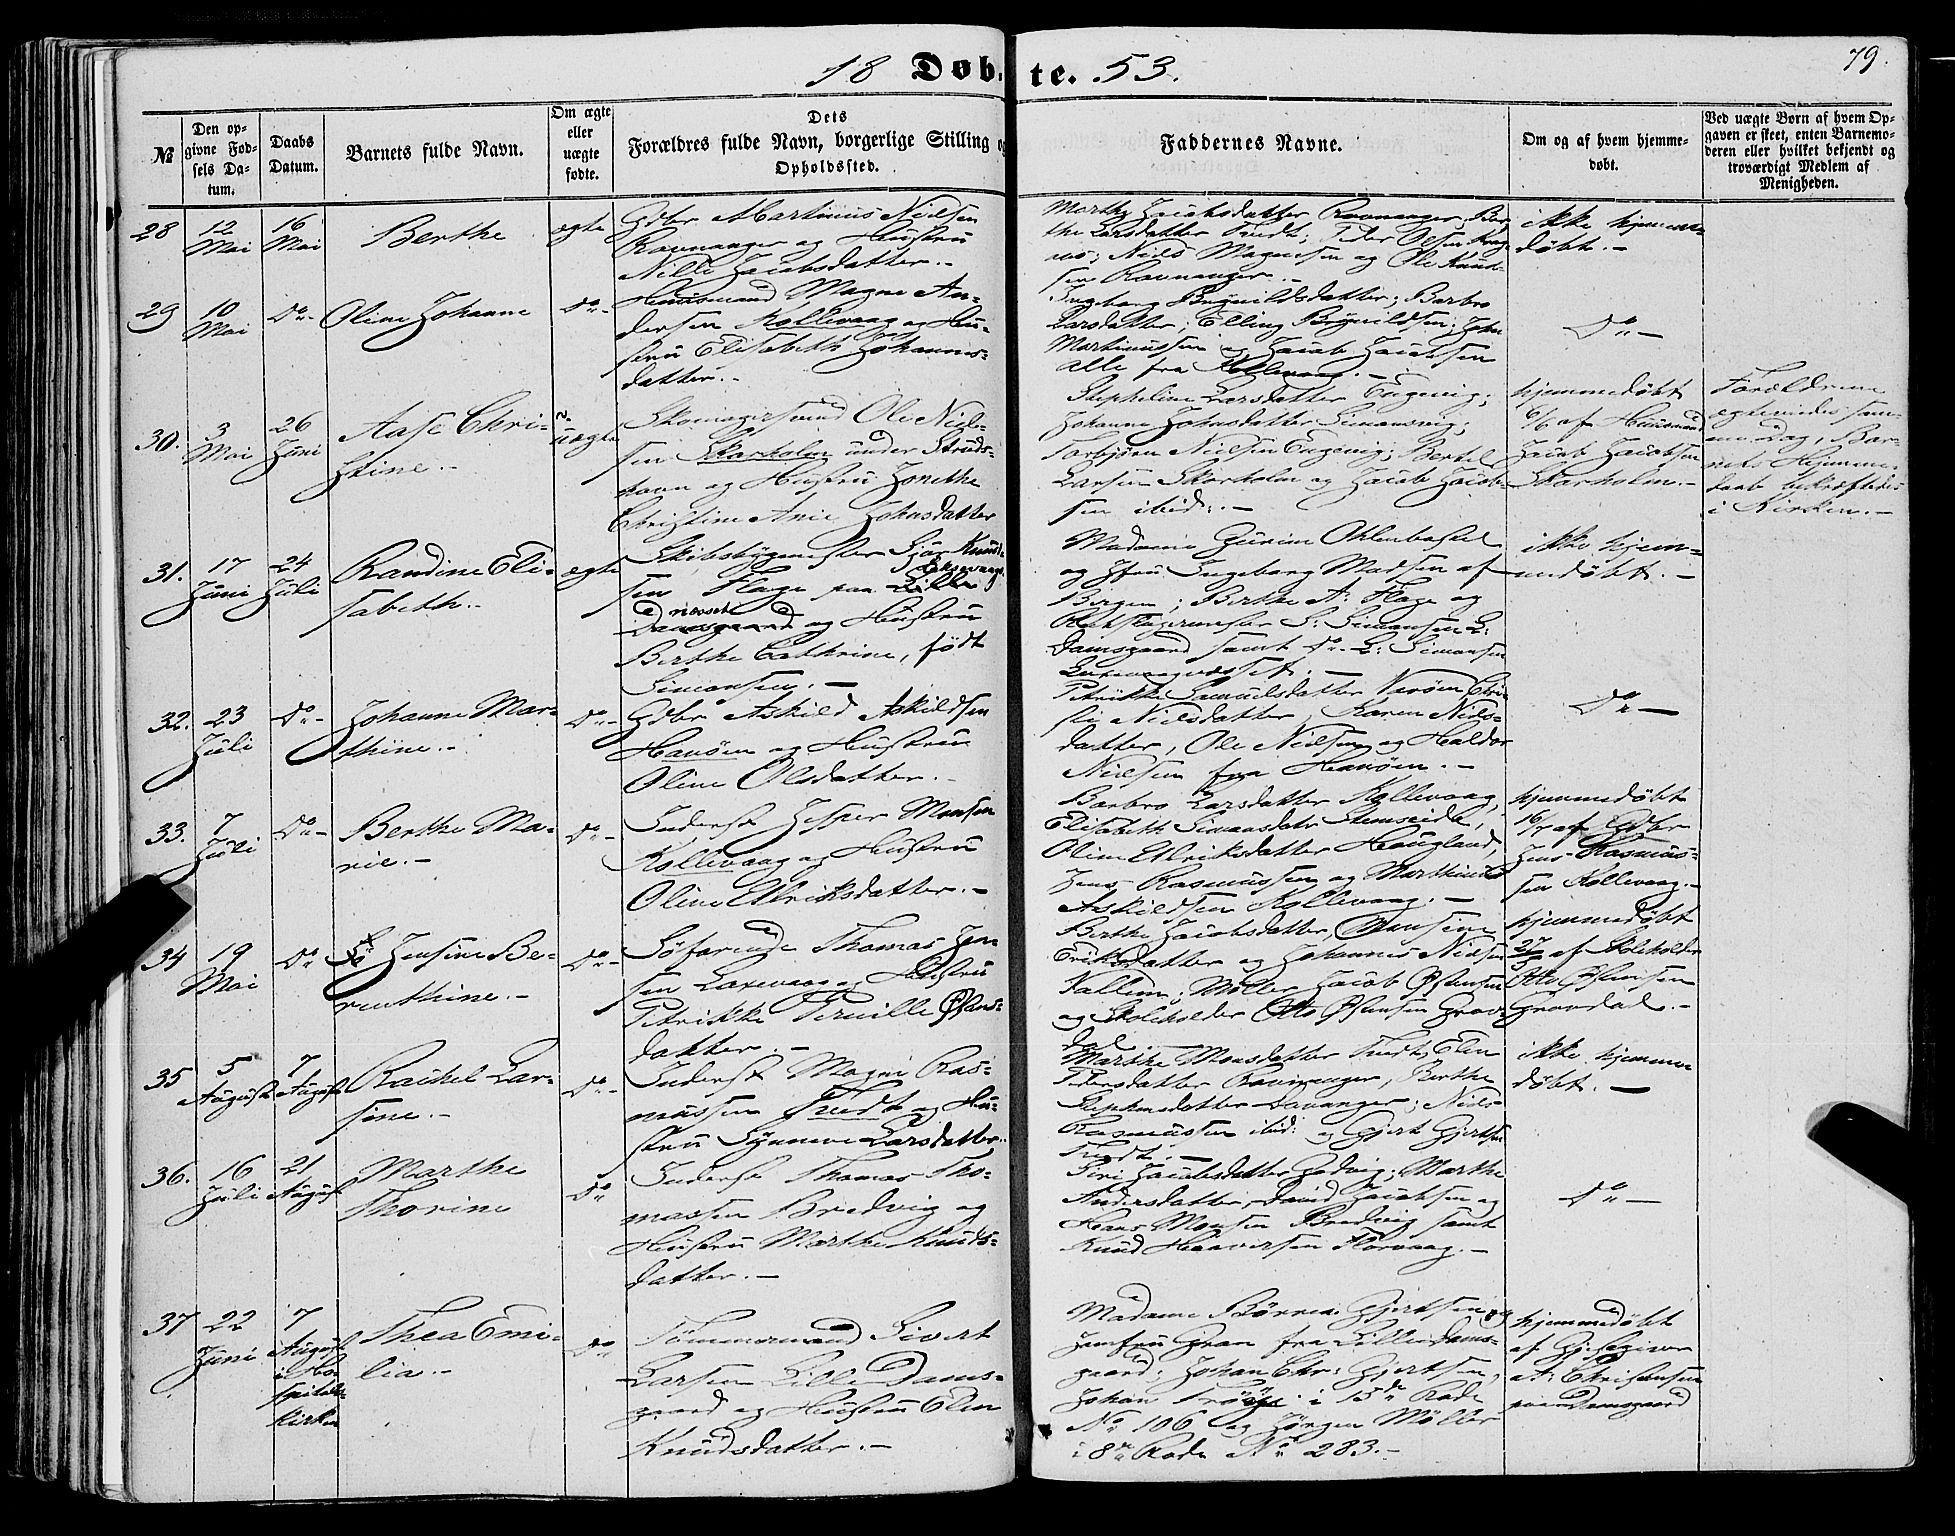 18 Døb-
te. 53.
79.
№
Den op-
givne Fød-
sels Da-
tum.
Daabs
Datum.
Barnets fulde Navn.
Om ægte
eller
uægte
fødte.
Dets
Forældres fulde Navn, borgerlige Stilling og
Opholdssted.
Faddernes Navne.
Om og af hvem hjemme-
døbt.
Ved uægte Børn af hvem Op-
gaven er skeet, enten Barnemo-
deren eller hvilket bekjendt og
troværdigt Medlem af
Menigheden.
28
12
Mai
16
Mai
Berthe
egte
Gdbr Martinus Nielsen
Ravnanger og Hustru
Nille Jacobsdatter.-
Marthe Jacobsdatter Ravnanger, Ber-
the Larsdatter Tvedt; Peder Olsen
Niels Magnesen og Ole Knud-
sen Ravnanger.-
ikke hjemme-
døbt.-
29
10
Mai
Do-
Oline Johanne
Do-
Huusmand Magne An-
dersen Kollevaag og Hu-
stru Elisabeth Johannes-
datter.-
Ingeborg Brynildsdatter; Barbro
Larsdatter; Elling Brynildsen; John
Martinussen og Jacob Jacobsen
alle fra Kollevaag.-
Do-
30.
3
Mai
26
Juni
Aase Chri-
stine.-
uægte
Skomagersvend Ole Niel-
sen Skarholm under Struds-
havn og Hustru Jonethe
Christine Anie Johnsdatter
Stepheline Larsdatter
Johanne Johnsdatter Simonsvig;
Torbjørn Nielsen; Bertel
Larsen Skarholm og Jacob Jacob-
sen ibid:.-
hjemmedøbt
6/6 af Huusmand
Jacob Jacobsen
Skarholm.-
Forældrene
egteviedes sam-
me Dag, Bar-
nets Hjemme-
daab bekræftedes
i Kirken.-
31.
17
Juni
24
Juli
Randine Eli-
sabeth.-
egte
Skibsbygmester Sjur Knud-
sen Flage paa Lille
Damsgaard og Hustru
Berthe Cathrine, født
Simonsen.-
Madame Gurine Ohlenbostel
og Jfru Ingeborg Madsen af
Bergen; Berthe A: Flage og
S: Simonsen L:
Damsgaard samt Do. L: Simonsen
ikke hjem-
medøbt.-
32.
23
Juli
Do-
Johanne Mar-
thine.-
Do-
Gdbr Askild Askildsen
Hanøen og Hustru
Oline Olsdatter.-
Petrikke Samuelsdatter Chri-
sti Nielsdatter, Karen Niels-
datter, Ole Nielsen og Haldor
Nielsen fra Hanøen.-
Do-
33.
7
Juli
Do-
Berthe Ma-
rie.-
Do-
Inderst Jesper Monsen
Kollevaag og Hustru
Oline Ulriksdatter.-
Barbro Larsdatter Kollevaag,
Elisabeth Simonsdatr
Oline Ulriksdatter Haugland,
Jens Rasmussen og Marthinus
Askildsen Kollevaag.-
hjemmedøbt
16/7 af Gdbr
Jens Rasmus-
sen Kollevaag.-
34
19
Mai
Do
Jensine Be-
renthine.-
Do-
Søfarende Thomas Jen-
sen Laxevaag og Hustru
Petrikke Pernille Østens-
datter.-
Berthe Jacobsdatter,
Eriksdatter og Johannes Nielsen
Møller Jacob Østensen
og Skoleholder Otto Østensen Grav-
dal.-
hjemmedøbt
27/5 af Skoleholder
Otto Østensen
Gravdal.-
35
5
August
7
August
Rachel Lar-
sine.-
Do-
Inderst Magne Ras-
mussen Tvedt og Hu-
stru Synneve Larsdatter.-
Marthe Monsdatter Tvedt, Elen
Pedersdatter Ravnanger, Berthe
Stephensdatter Davanger; Niels
Rasmussen ibid: og Gjert Gjertsen
Tvedt.-
ikke hjemme-
døbt.-
36.
16
Juli
21
August
Marthe
Thorine
Do
Inderst Thomas Tho-
massen Bredvig og
Hustru Marthe Knuds-
datter.-
Siri Jacobsdatter; Marthe
Andersdatter, David Jacobsen og
Hans Monsen Bredvig samt
Knud Haaversen Florvaag.-
Do-
37
22
Juni
7
August
i Ho-
spitals-
kirken
Thea Emi-
lia.-
Do
Tømmermand Sivert
Larsen Lille Dams-
gaard og Hustru Elen
Knudsdatter.-
Madame Gjertsen og
Jomfru Gran fra Lille Dams-
gaard; Johan Chr: Gjertsen,
Johan i 15de Rode
No 106 og Jørgen Møller
i 8de Rode No 283.-
hjemmedøbt
af
A: Christensen
paa Damsgaard